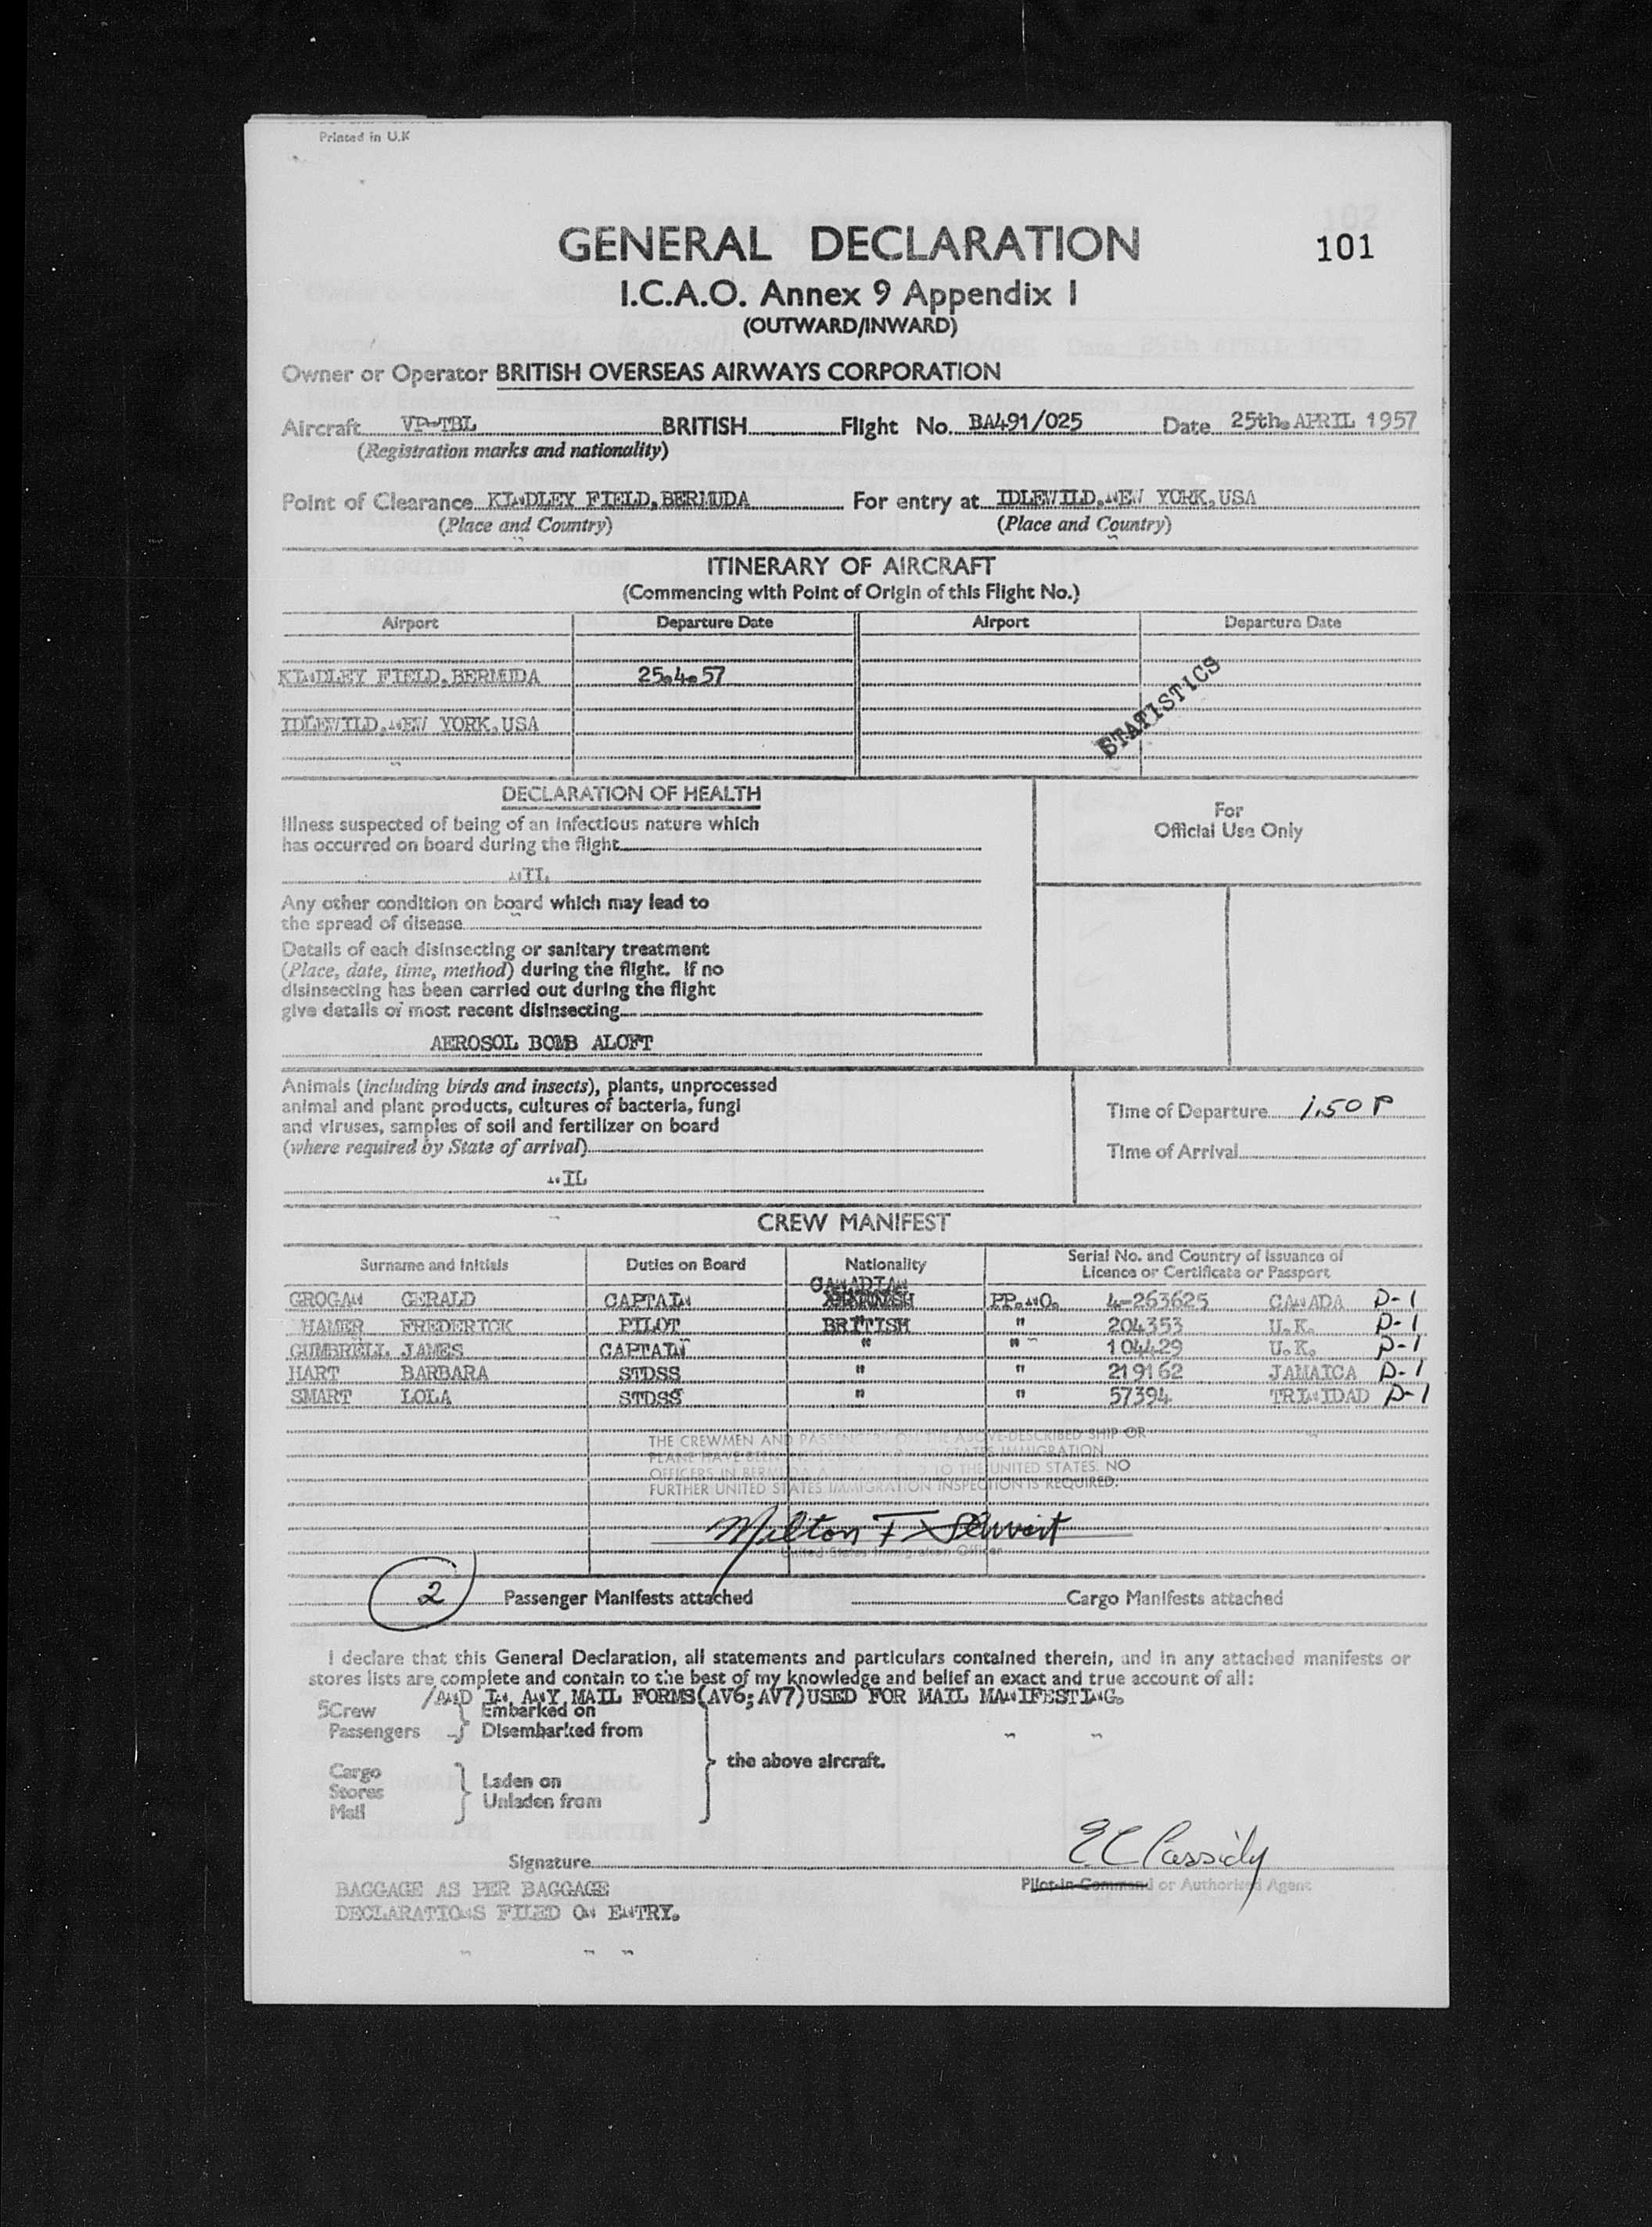 Printed in U.K
GENERAL DECLARATION 101
I.C.A.O. Annex 9 Appendix I
(OUTWARD/INWARD)
Owner or Operator BRITISH OVERSEAS AIRWAYS CORPORATION
Aircraft VP-TBL BRITISH Flight No. BA491/025 Date 25th. APRIL 1957
(Registration marks and nationality)
Point of Clearance KINDLEY FIELD, BERMUDA For entry at IDLEWILD, NEW YORK, USA
(Place and Country) (Place and Country)
ITINERARY OF AIRCRAFT
(Commencing with Point of Origin of this Flight No.)
Airport Departure Date Airport Departure Date
KINDLEY FIELD, BERMUDA 25.4.57
STATISTICS
IDLEWILD, NEW YORK, USA
DECLARATION OF HEALTH
For
Official Use Only
Illness suspected of being of an infectious nature which
has occurred on board during the flight
NIL
Any other condition on board which may lead to
the spread of disease
Details of each disinsecting or sanitary treatment
(Place, date, time, method) during the flight. If no
disinsecting has been carried out during the flight
give details of most recent disinsecting
AEROSOL BOMB ALOFT
Animals (including birds and insects), plants, unprocessed
animal and plant products, cultures of bacteria, fungi
and viruses, samples of soil and fertilizer on board
(where required by State of arrival)
NIL
Time of Departure 1.50 P
Time of Arrival
CREW MANIFEST
Surname and Initials Duties on Board Nationality Serial No. and Country of Issuance of
Licence or Certificate or Passport
CANADIAN
GROGAN GERALD CAPTAIN PP.NO. 4-263625 CANADA D-1
HAMER FREDERICK PILOT BRITISH " 204353 U.K. D-1
GUMBRELL JAMES CAPTAIN " " 104429 U.K. D-1
HART BARBARA STDSS " " 219162 JAMAICA D-1
SMART LOLA STDSS " " 57394 TRINIDAD D-1
THE CREWMEN AND PASSENGERS ON THE ABOVE-DESCRIBED SHIP OR
PLANE HAVE BEEN STATES IMMIGRATION
OFFICERS IN BERMUDA TO THE UNITED STATES. NO
FURTHER UNITED STATES IMMIGRATION INSPECTION IS REQUIRED.
Milton F
United States Immigration Officer
2 Passenger Manifests attached Cargo Manifests attached
I declare that this General Declaration, all statements and particulars contained therein, and in any attached manifests or
stores lists are complete and contain to the best of my knowledge and belief an exact and true account of all:
/AND IN ANY MAIL FORMS(AV6; AV7)USED FOR MAIL MANIFESTING.
5Crew Embarked on
Passengers Disembarked from
the above aircraft.
Cargo
Stores Laden on
Mail Unladen from
Signature E C Cassidy
Pilot-in-Command or Authorised Agent
BAGGAGE AS PER BAGGAGE
DECLARATIONS FILED ON ENTRY.